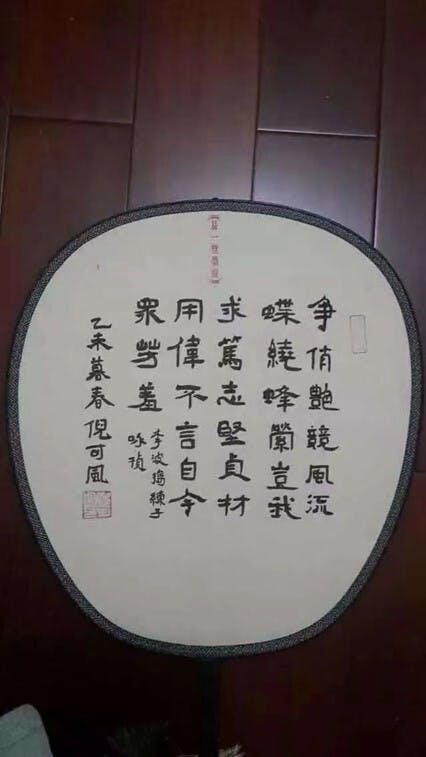 争俏艷競風流
蝶繞蜂縈豈我
求篤志堅貞材
用偉不言自令
眾芳羞
李波搗練子
咏楨
乙未暮春倪可風